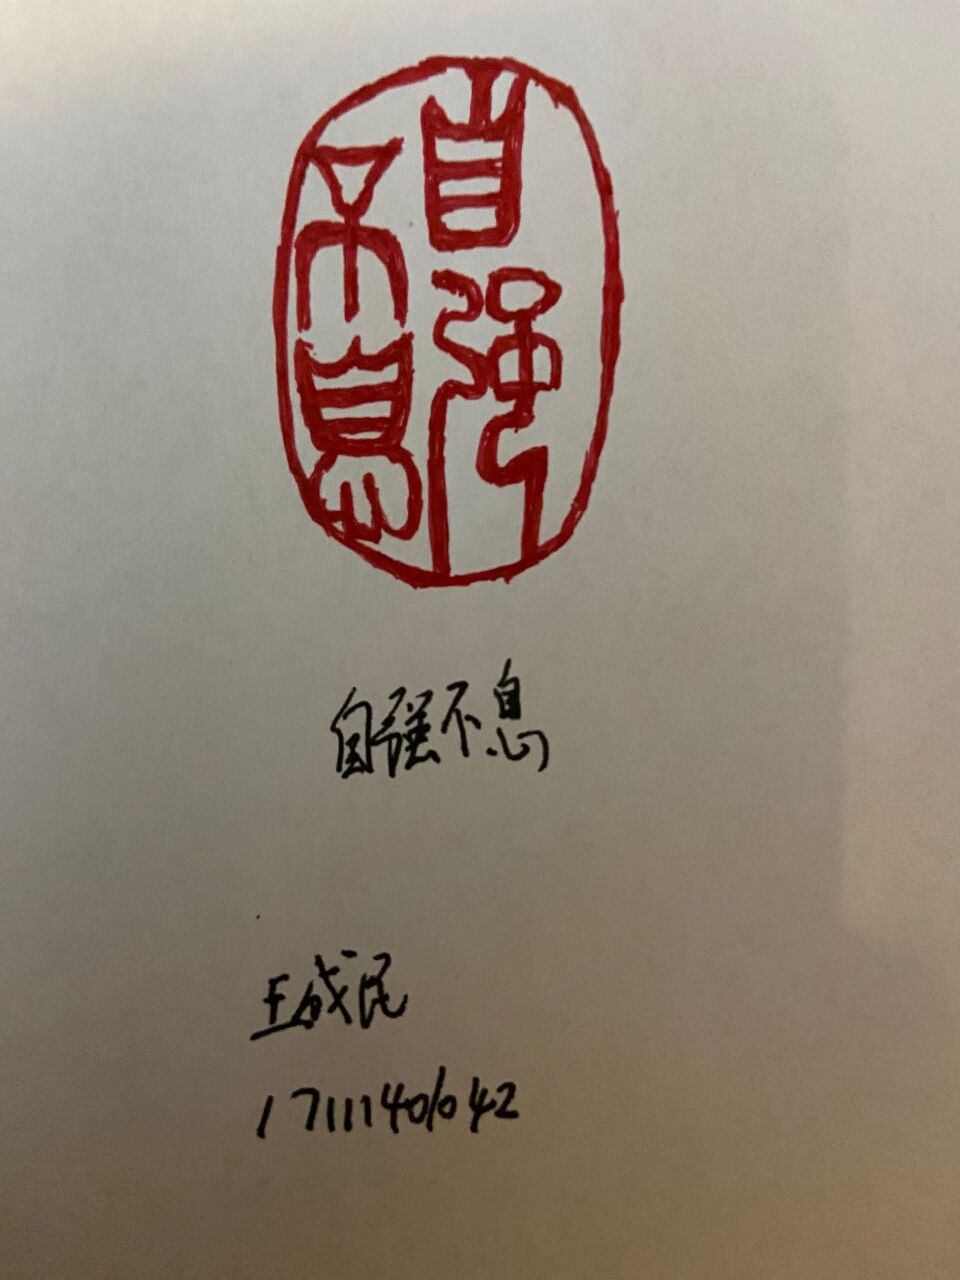 自强不息
自强不息
王成民
17111401042